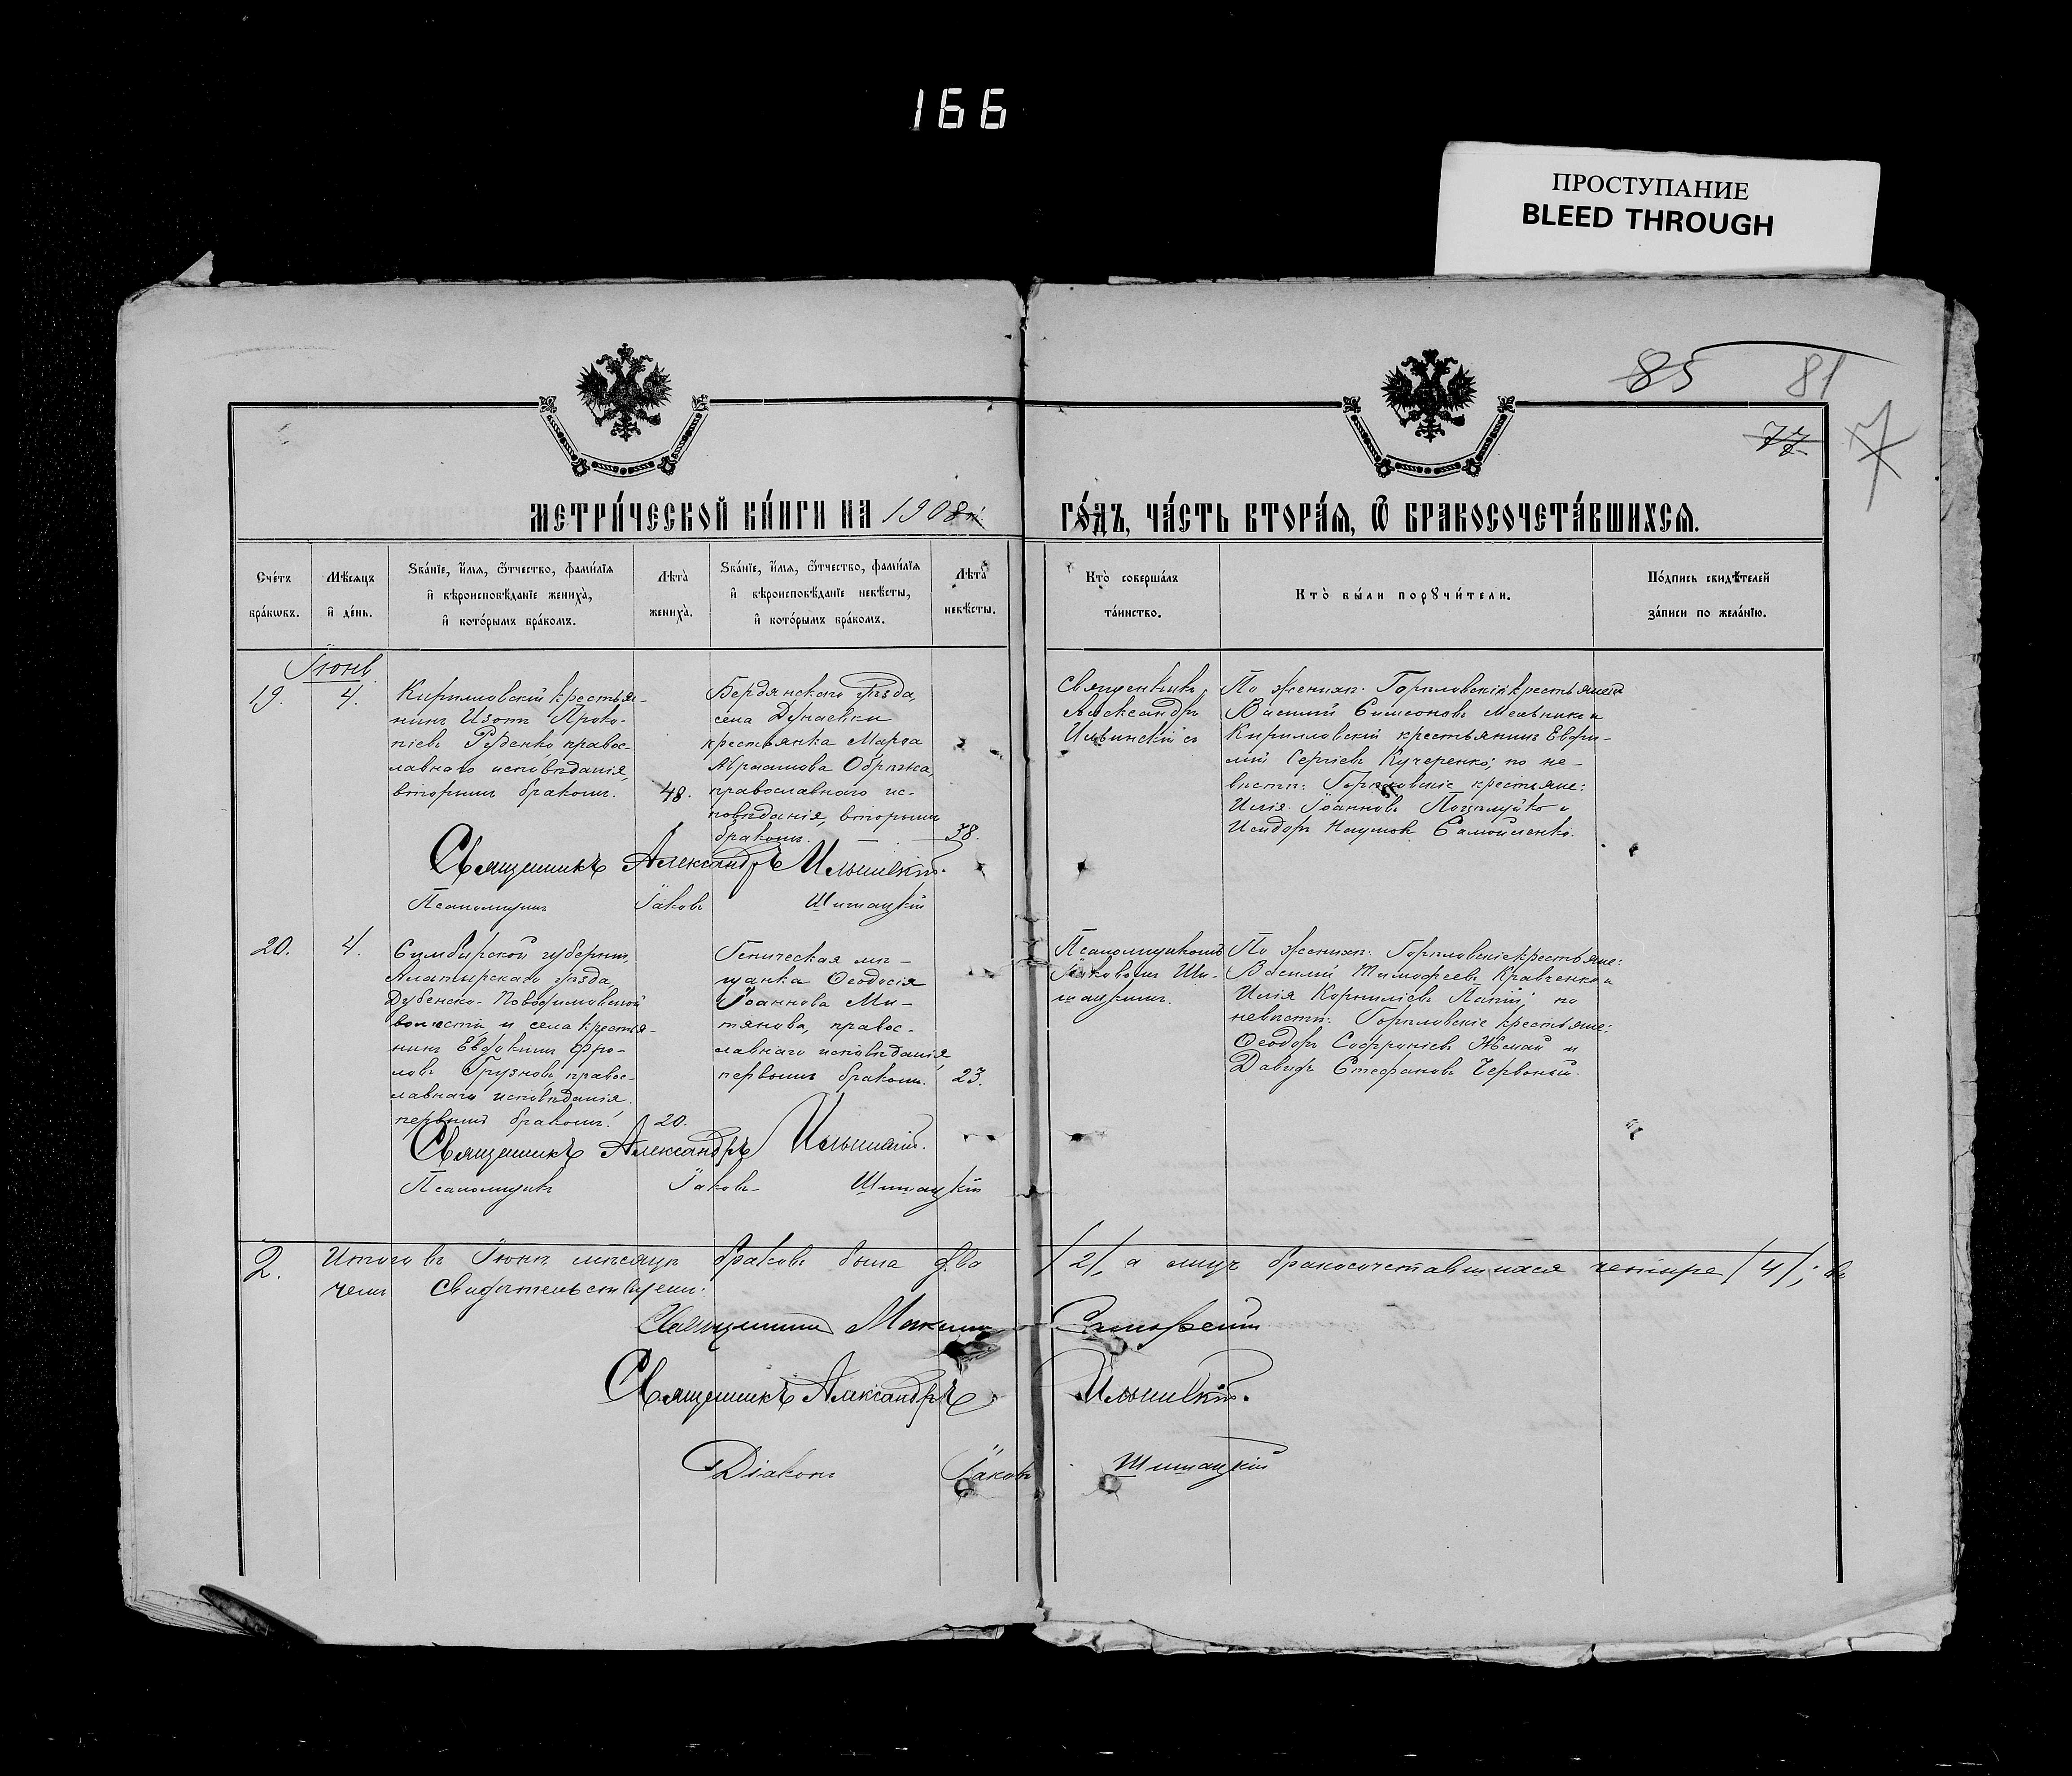 166
ПРОСТУПАНИЕ
BLEED THROUGH
85 81
77
МЕТРИ́ЧЕСКОЙ КНИ́ГИ НА 1908 г.
ГО́ДЪ, ЧА́СТЬ ВТОРА́Ѧ, Ѽ БРАКОСОЧЕТА́ВШИХСѦ.
Сче́тъ
бра́кѡвъ.
Мѣ́сяцъ
и҆ де́нь.
Ѕва́нїе, и҆́мѧ, ѻ҆́тчество, фами́лїѧ
и҆ вѣроисповѣ́данїе жениха̀,
и҆ кото́рымъ бра́комъ.
Лѣ́та
жениха̀.
Ѕва́нїе, и҆́мѧ, ѻ҆́тчество, фами́лїѧ
и҆ вѣроисповѣ́данїе невѣ́сты,
и҆ кото́рымъ бра́комъ.
Лѣ́та
невѣ́сты.
Кто̀ соверша́лъ
та́инство.
Кто̀ бы́ли порꙋчи́тели.
По́дпись свидѣ́телей
за́писи по жела́нїю.
Іюнь
19.
4.
Кирилловскій крестья-
нинъ Изотъ Проко-
піевъ Руденко, правос-
лавнаго исповѣданія,
вторымъ бракомъ.
48.
Бердянскаго уѣзда,
села Дунаевки
крестьянка Марѳа
Авраамова Обрѣжка,
православнаго ис-
повѣданія, вторымъ
бракомъ.
38.
Священникъ
Александръ
Ильинскій съ
По женихѣ: Горѣловскій крестьянинъ
Василій Симеоновъ Мельникъ и
Кирилловскій крестьянинъ Евѳи-
мій Сергіевъ Кучеренко; по не-
вѣстѣ: Горѣловскіе крестьяне:
Илія Іоанновъ и
Исидоръ Наумовъ Самойленко.
Священникъ Александръ Ильинскій.
Псаломщикъ Іаковъ Шишацкій
20.
4.
Симбирской губерніи,
Алатырскаго уѣзда,
Дубенско-
волости и села крестья-
нинъ Евдокимъ Фро-
ловъ Грузновъ, правос-
лавнаго исповѣданія,
первымъ бракомъ.
20.
Геническая мѣ-
щанка Ѳеодосія
Іоаннова Ми-
тякова, правос-
лавнаго исповѣданія,
первымъ бракомъ.
23.
Псаломщикомъ
Іаковомъ Ши-
шацкимъ.
По женихѣ: Горѣловскіе крестьяне:
Василій Тимоѳеевъ Кравченко и
Илія Корниліевъ Папій; по
невѣстѣ: Горѣловскіе крестьяне:
Ѳеодоръ Софроніевъ и
Давидъ Стефановъ Червоный.
Священникъ Александръ Ильинскій.
Псаломщикъ Іаковъ Шишацкій
2.
Итого въ Іюнѣ мѣсяцѣ браковъ было два /2/, а лицъ бракосочетавшихся четыре /4/; въ
чемъ свидѣтельствуемъ:
Священникъ Максимъ
Священникъ Александръ Ильинскій.
Діаконъ Іаковъ Шишацкій